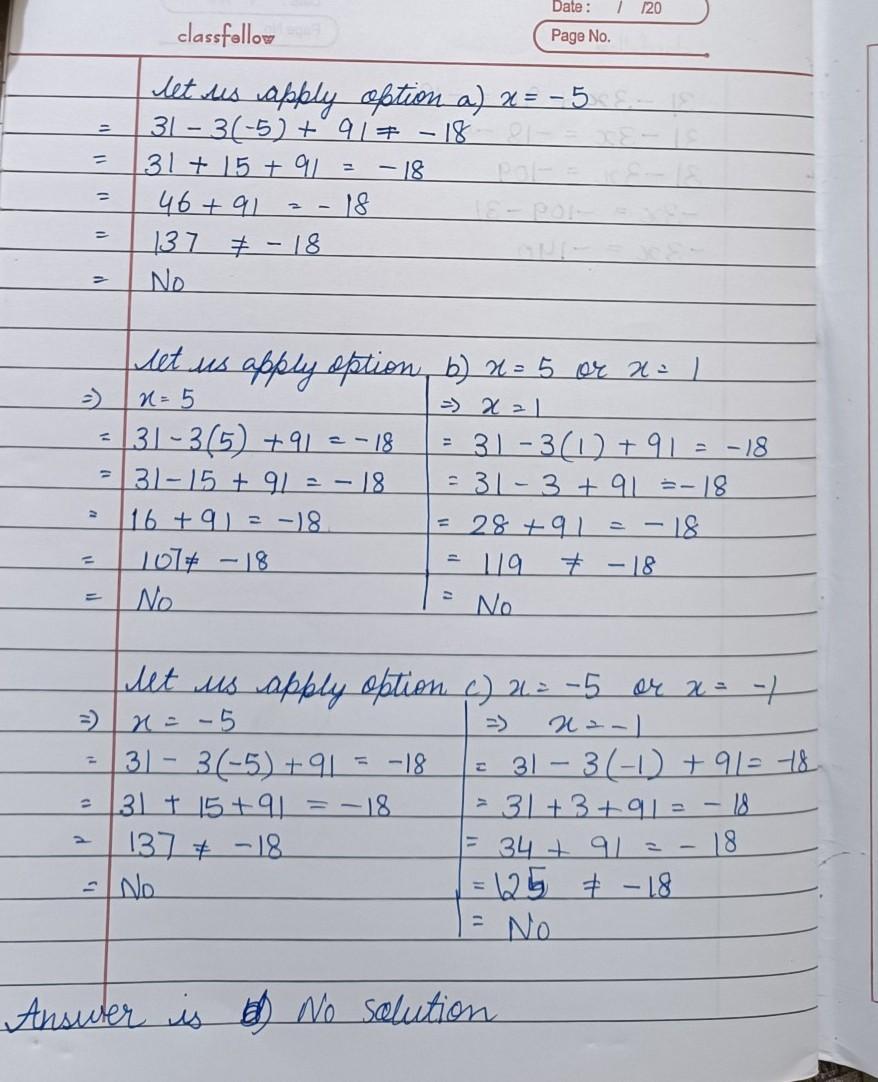 Date : / /20
classfellow
Page No.
let us apply option a) x = -5
= 31 - 3(-5) + 91 ≠ -18
= 31 + 15 + 91 = -18
= 46 + 91 = -18
= 137 ≠ -18
= No
let us apply option b) x = 5 or x = 1
=> x = 5
= 31 - 3(5) + 91 = -18
= 31 - 15 + 91 = -18
= 16 + 91 = -18
= 107 ≠ -18
= No
=> x = 1
= 31 - 3(1) + 91 = -18
= 31 - 3 + 91 = -18
= 28 + 91 = -18
= 119 ≠ -18
= No
let us apply option c) x = -5 or x = -1
=> x = -5
= 31 - 3(-5) + 91 = -18
= 31 + 15 + 91 = -18
= 137 ≠ -18
= No
=> x = -1
= 31 - 3(-1) + 91 = -18
= 31 + 3 + 91 = -18
= 34 + 91 = -18
= 125 ≠ -18
= No
Answer is d) No solution